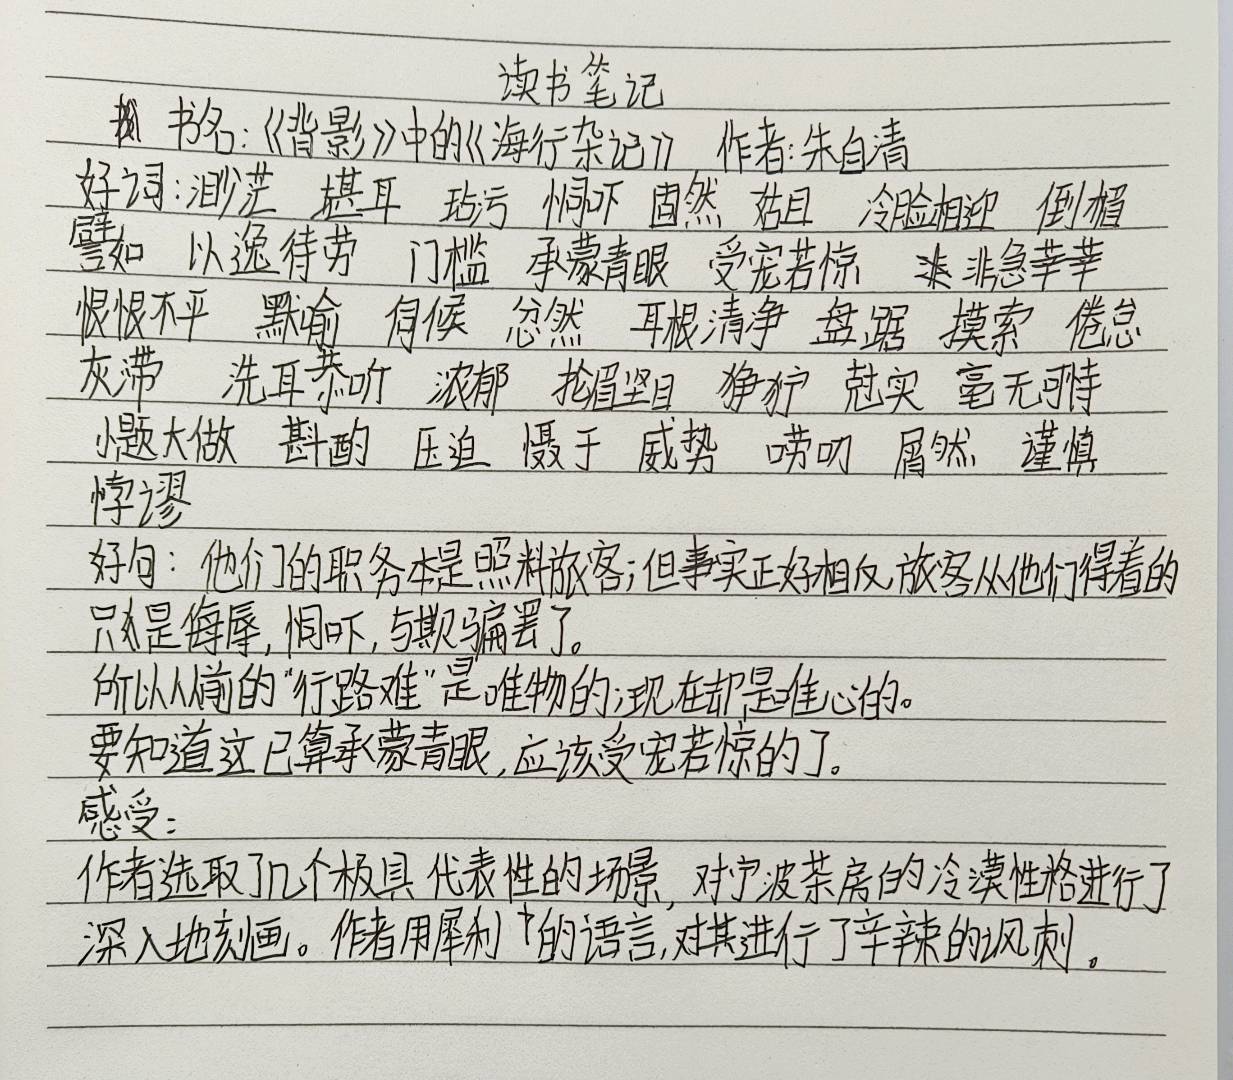 读书笔记
书名:《背影》中的《海行杂记》 作者:朱自清
好词:渺茫 堪耳 玷污 恫吓 固然 姑且 冷脸相迎 倒楣
譬如 以逸待劳 门槛 承蒙青眼 受宠若惊 非急莘莘
恨恨不平 默喻 伺候 忿然 耳根清净 盘踞 摸索 倦怠
灰滞 洗耳恭听 浓郁 抡眉竖目 狰狞 尅实 毫无可恃
小题大做 斟酌 压迫 慑于 威势 唠叨 屑然 谨慎
悖谬
好句:他们的职务本是照料旅客;但事实正好相反,旅客从他们得着的
只是侮辱,恫吓,与欺骗罢了。
所以从前的“行路难”是唯物的;现在却是唯心的。
要知道这已算承蒙青眼,应该受宠若惊的了。
感受:
作者选取了几个极具代表性的场景,对宁波茶房的冷漠性格进行了
深入地刻画。作者用犀利的语言,对其进行了辛辣的讽刺。